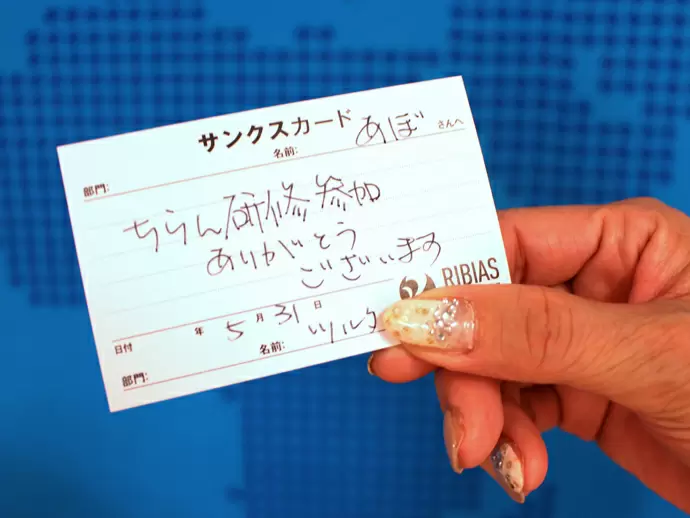 サンクスカード
部門: 名前: あぼ さんへ
ちらん研修参加
ありがとう
ございます
RIBIAS
日付 年 5月31日
部門: 名前: ツルタ